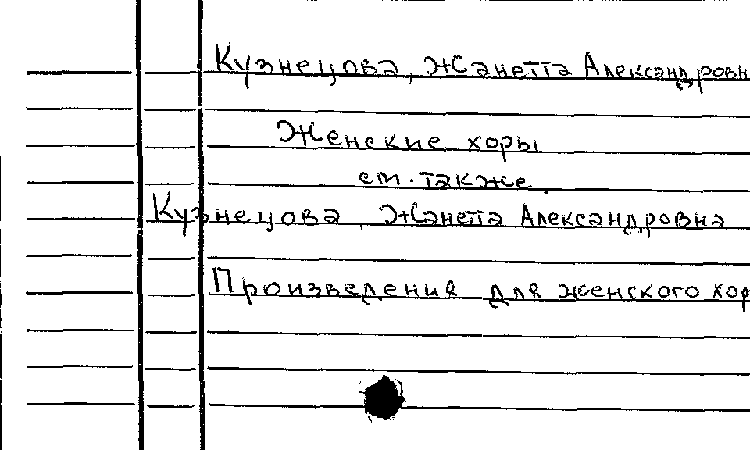 Кузнецова, Жанетта Александровн
Женские хоры
см. также
Кузнецова, Жанетта Александровна
Произведения для женского хор